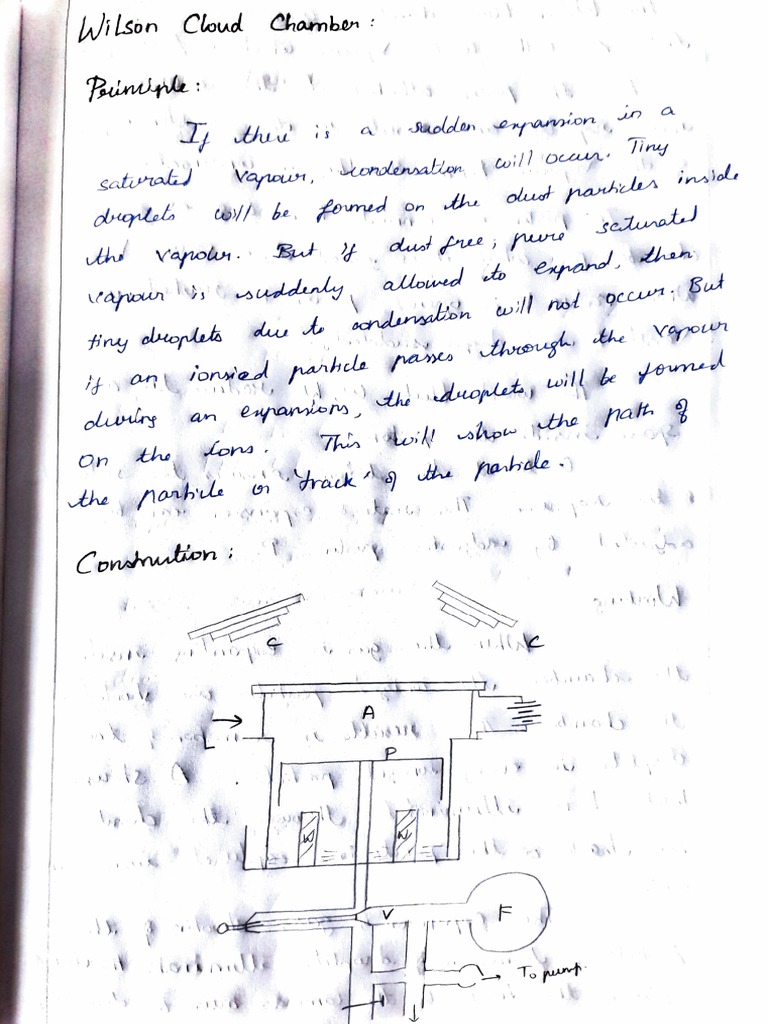 Wilson Cloud Chamber:
Principle:
If there is a sudden expansion in a
saturated vapour, condensation will occur. Tiny
droplets will be formed on the dust particles inside
the vapour. But if dust free, pure saturated
vapour is suddenly allowed to expand, then
tiny droplets due to condensation will not occur. But
if an ionsied particle passes through the vapour
during an expansions, the droplets will be formed
on the Ions. This will show the path of
the particle or 'track' of the particle.
Constrution:
C C
A
L
P
W W
V F
To pump.